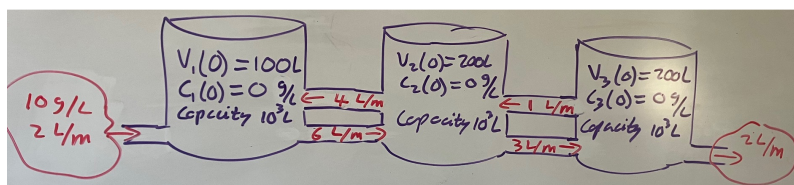 10 g/L
2 L/m
V₁(0)=100L
C₁(0)=0 g/L
Capacity 10³L
4 L/m
6 L/m
V₂(0)=200L
C₂(0)=0 g/L
Capacity 10³L
1 L/m
3 L/m
V₃(0)=200L
C₃(0)=0 g/L
Capacity 10³L
2 L/m